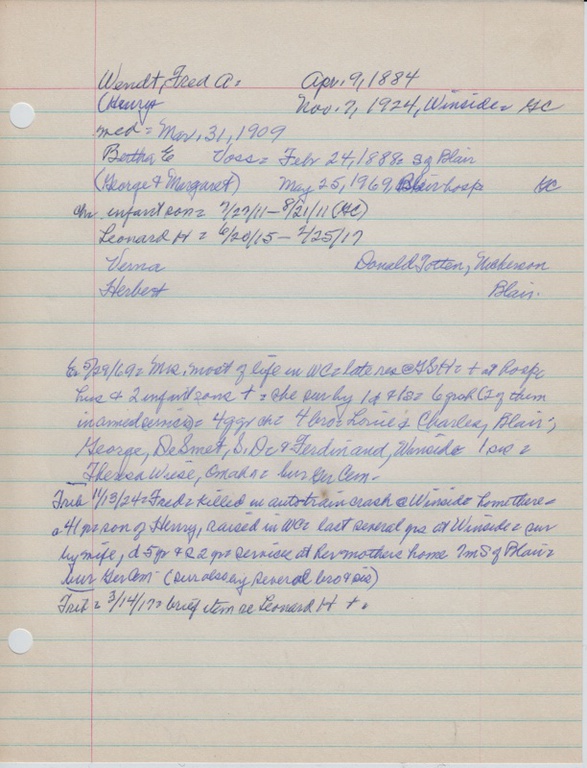 Wendt, Fred A= Apr. 9, 1884
(Henry Nov. 7, 1924, Winside= GC
med= Mar. 31, 1909
Bertha E Voss= Feb 24, 1888= S of Blair
(George & Margaret) May 25, 1969, Blair hosp GC
chr infant son= 7/27/11-8/21/11 (GC)
Leonard H= 6/20/15-2/25/17
Verna Donald Totten, Nickerson
Herbert Blair.
E= 5/29/69= Mrs. most of life in WC= late res @ GSH= + at hosp=
hus & 2 infant sons += she sur by 1d & 1s= 6 grch (2 of them
in armed services)= 4 ggr ch= 4 bro= Louie & Charles, Blair;
George, DeSmet, S.D. & Ferdinand, Winside 1 sis=
Theresa Wiese, Omaha= bur Ger Cem-
Trib 11/13/24= Fred= killed in auto-train crash @ Winside home there=
41 yr= son of Henry, raised in WC= last several yrs at Winside= sur
by wife, d 5 yr & s 2 yr= service at her mothers home 7m S of Blair=
bur Ger Cem- (sur also by several bro & sis)
Trib= 3/14/17= brief item re Leonard H +.